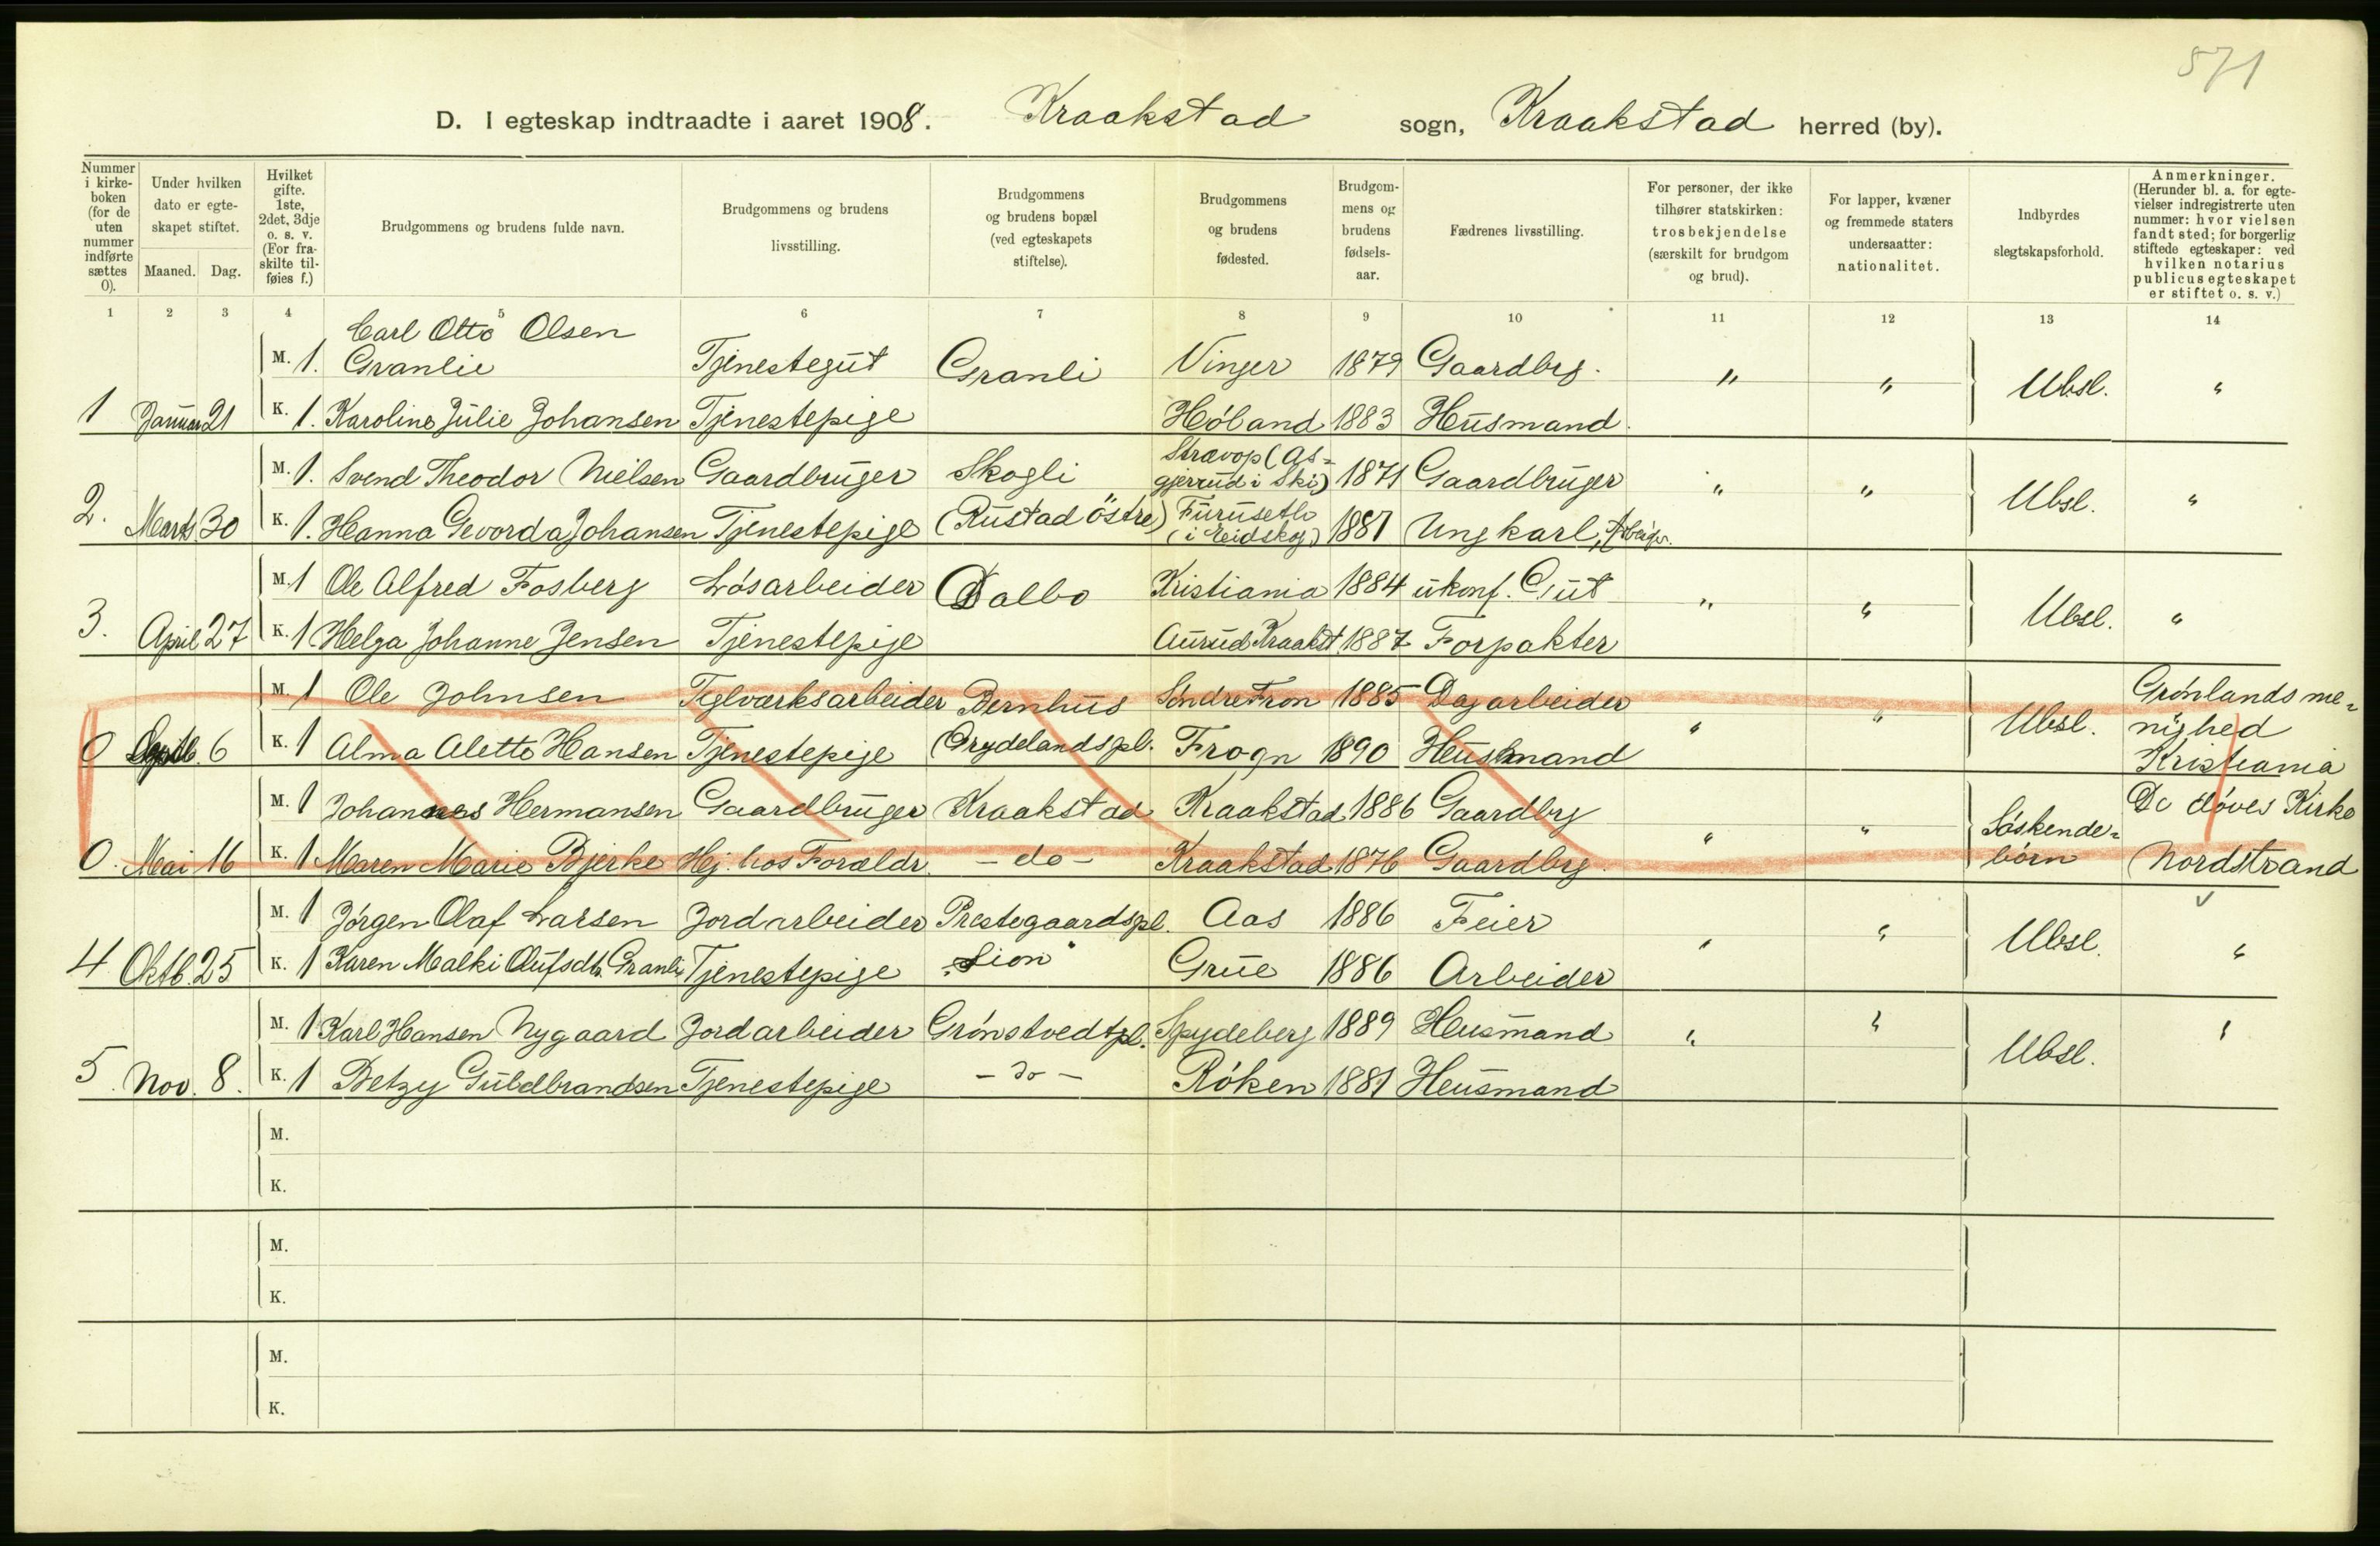 571
D. I egteskap indtraadte i aaret 1908. Kraakstad sogn, Kraakstad herred (by).
Nummer i kirke-boken (for de uten nummer indførte sættes 0).
Under hvilken dato er egte-skapet stiftet.
Maaned. Dag.
Hvilket gifte. 1ste, 2det, 3dje o. s. v. (For fra-skilte til-føies f.)
Brudgommens og brudens fulde navn.
Brudgommens og brudens livsstilling.
Brudgommens og brudens bopæl (ved egteskapets stiftelse).
Brudgommens og brudens fødested.
Brudgom-mens og brudens fødsels-aar.
Fædrenes livsstilling.
For personer, der ikke tilhører statskirken: trosbekjendelse (særskilt for brudgom og brud).
For lapper, kvæner og fremmede staters undersaatter: nationalitet.
Indbyrdes slegtskapsforhold.
Anmerkninger. (Herunder bl. a. for egte-vielser indregistrerte uten nummer: hvor vielsen fandt sted; for borgerlig stiftede egteskaper: ved hvilken notarius publicus egteskapet er stiftet o. s. v.)
1 2 3 4 5 6 7 8 9 10 11 12 13 14
Carl Otto Olsen
M. 1. Granlie Tjenestegut Granli Vinger 1879 Gaardbrg. " " Ubsl. "
1 Januar 21 K. 1. Karoline Julie Johansen Tjenestepige Høland 1883 Husmand.
M. 1. Svend Theodor Nielsen Gaardbruger Skogli Stravop (As-gjerrud i Ski) 1871 Gaardbruger " " Ubsl. "
2. Marts 30 K. 1. Hanna Gevorda Johansen Tjenestepige (Rustad östre) Furuseth (i Eidskog) 1887 Ungkarl,
M. 1 Ole Alfred Fosberg Løsarbeider Dalbo Kristiania 1884 ukonf. Gut " " Ubsl. "
3. April 27 K. 1. Helga Johanne Jensen Tjenestepige Aurud Kraakst. 1887 Forpakter
M. 1 Ole Johnsen Teglværksarbeider Bernhus Søndre Fron 1885 Dagarbeider " " Ubsl. Grønlands me-nighed Kristiania
0 6 K. 1 Alma Alette Hansen Tjenestepige Grydelandspl. Frogn 1890 Heusmand
M. 1 Johannes Hermansen Gaardbruger Kraakstad Kraakstad 1886 Gaardbrg " " Søskende-børn De døves Kirke Nordstrand
0. Mai 16 K. 1 Maren Marie Bjerke Hej. hos Forældr. - do - Kraakstad 1876 Gaardbrg.
M. 1 Jørgen Olaf Larsen Jordarbeider Prestegaardspl. Aas 1886 Feier " " Ubsl. "
4 Oktb. 25 K. 1 Karen Malki Olufsdtr. Granli Tjenestepige "Lion" Grue 1886 Arbeider
M. 1 Karl Hansen Nygaard Jordarbeider Grønstvedtpl. Spydeberg 1889 Heusmand " " Ubsl. "
5. Nov. 8. K. 1 Betzy Guldbrandsen Tjenestepige - do - Røken 1881 Heusmand
M.
K.
M.
K.
M.
K.